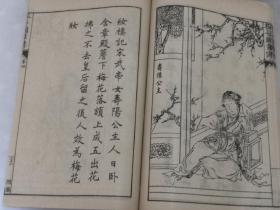 妝樓記宋武帝女壽陽公主人日卧
含章殿簷下梅花落額上成五出花
拂之不去皇后留之後人效為梅花
妝
壽陽公主